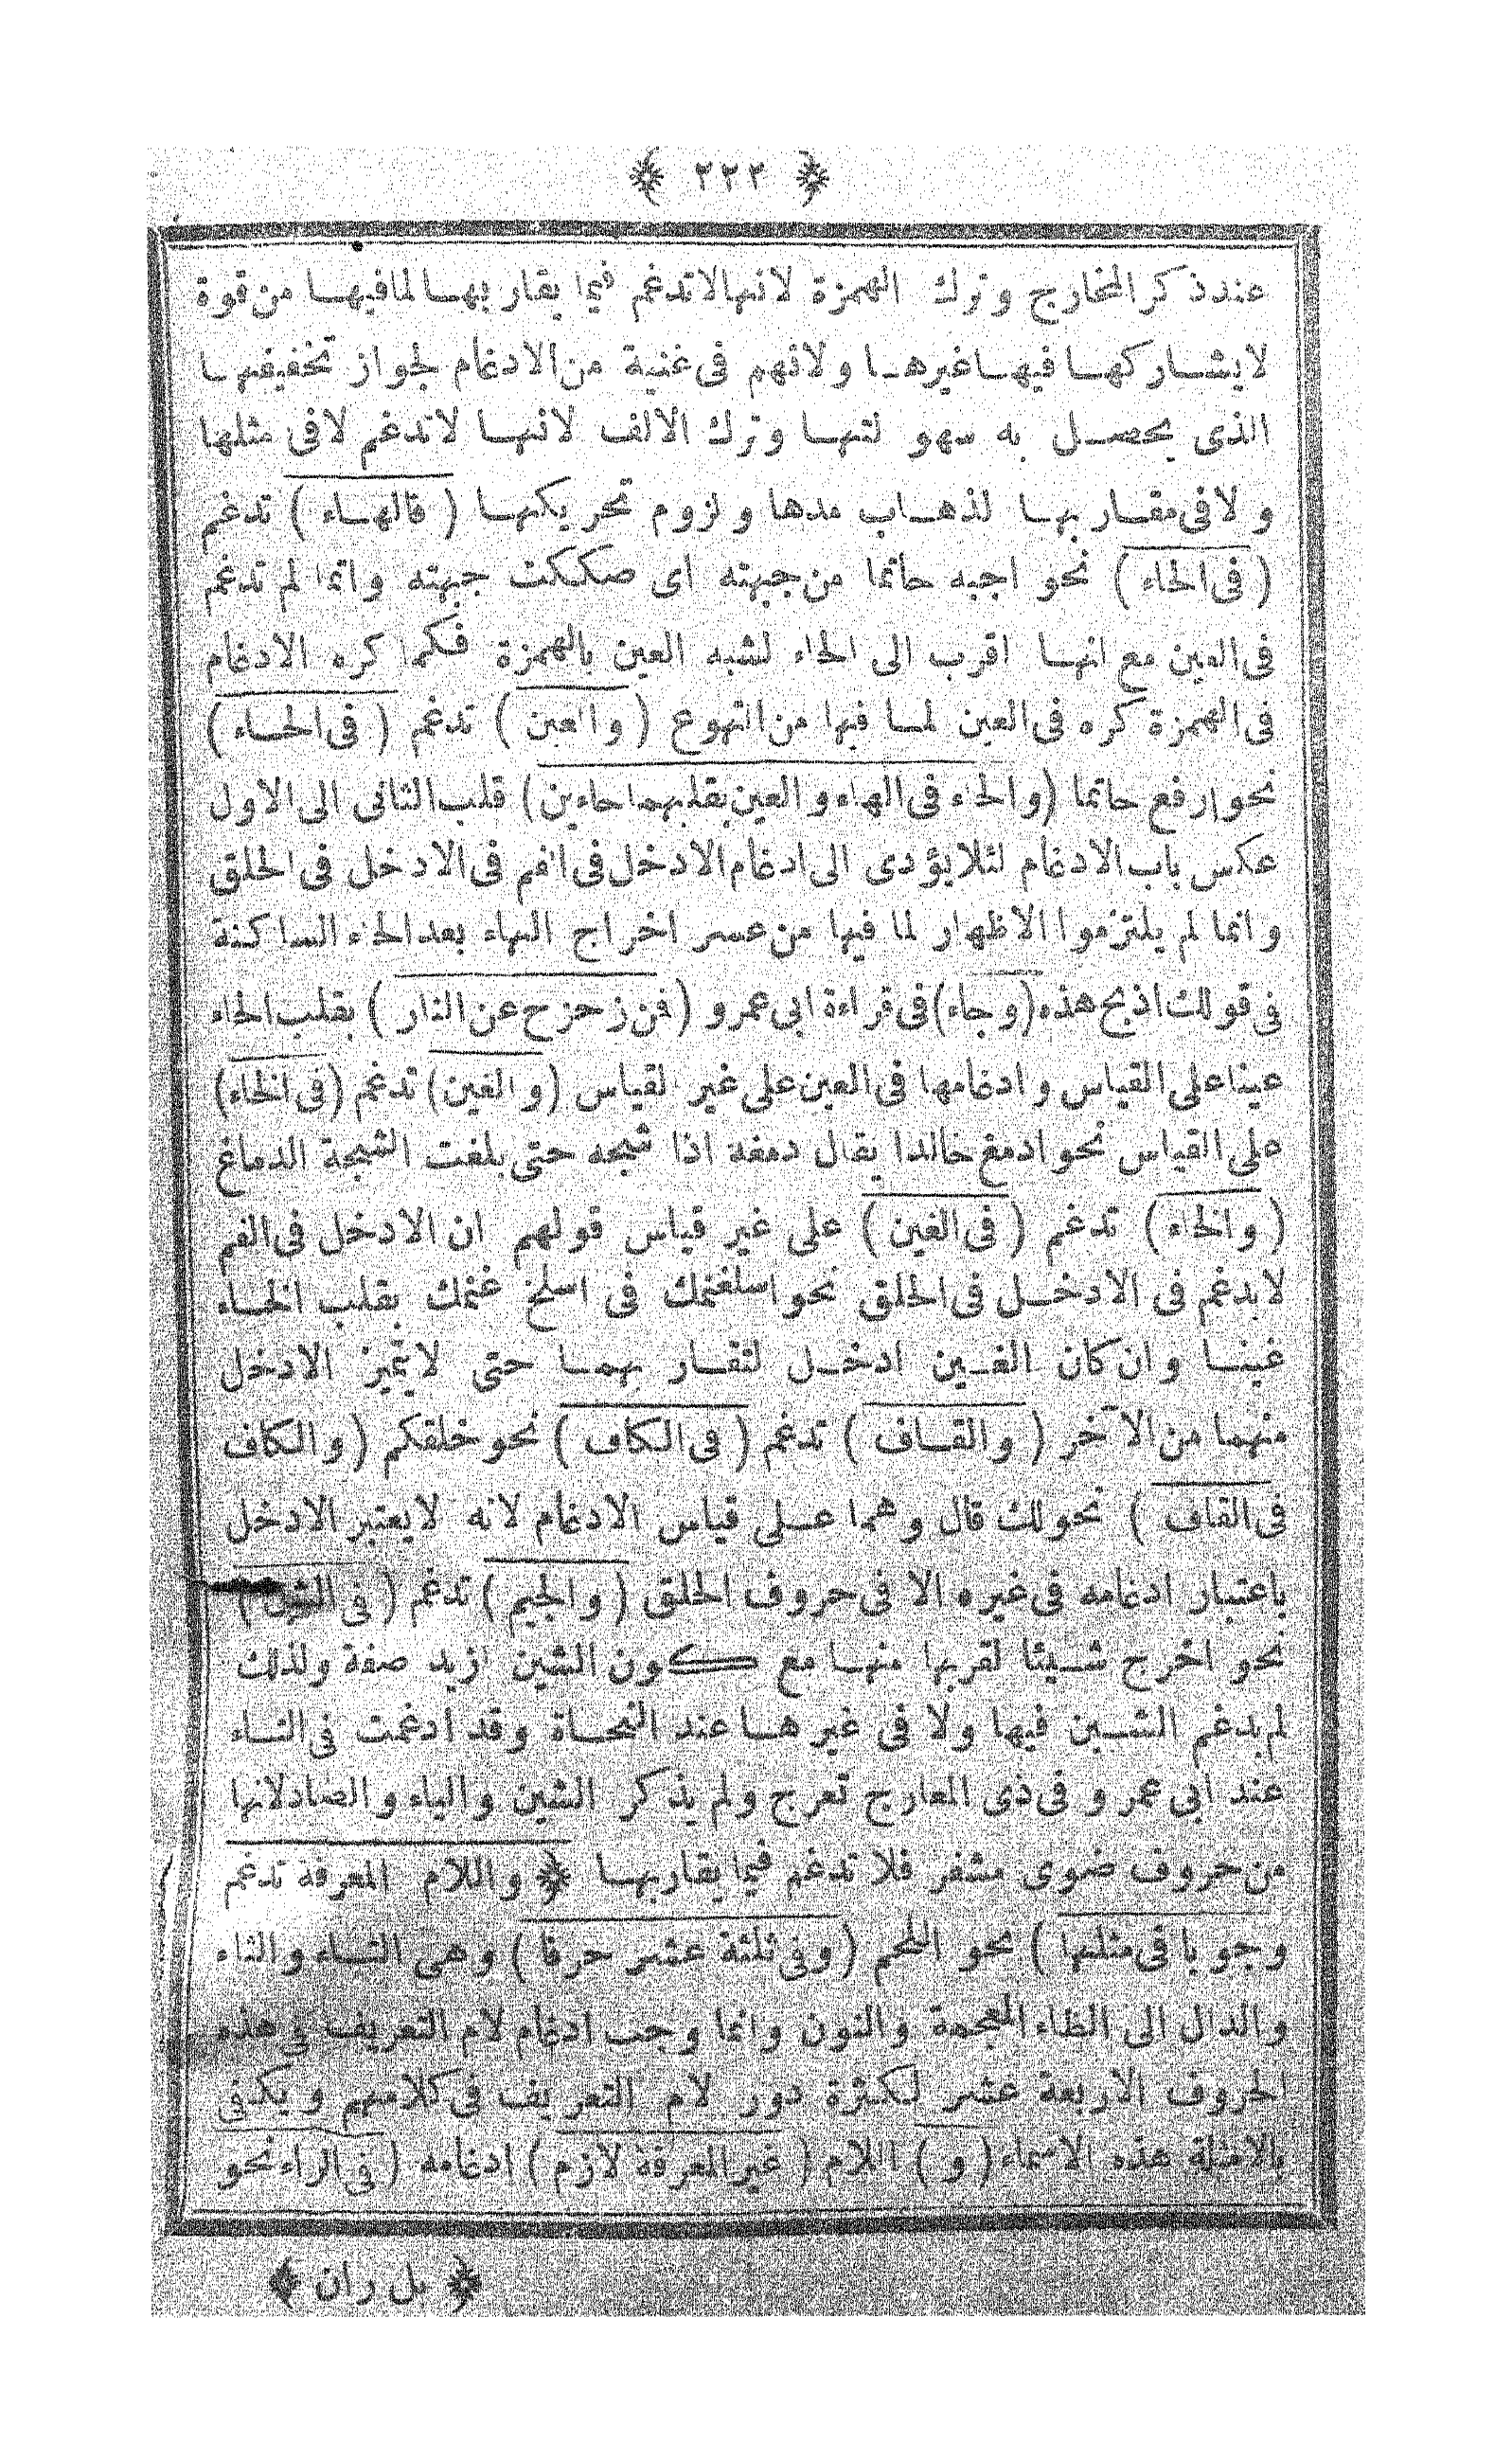 ﴿ ٢٢٢ ﴾
عند ذكر المخارج وترك الهمزة لانها لاتدغم فيما يقاربها لما فيها من قوة
لايشاركها فيها غيرها ولانهم فى غنية من الادغام لجواز تخفيفها
الذى يحصل به سهولتها وترك الالف لانها لاتدغم لا فى مثلها
ولا فى مقاربها لذهاب مدها ولزوم تحريكها ( فالهاء ) تدغم
( فى الحاء ) نحو اجبه حاتما من جبهته اى صككت جبهته وانما لم تدغم
فى العين مع انها اقرب الى الحاء لشبه العين بالهمزة فكما كره الادغام
فى الهمزة كره فى العين لما فيها من التهوع ( والعين ) تدغم ( فى الحاء )
نحو ارفع حاتما (والحاء فى الهاء والعين بقلبهما حاءين) قلب الثانى الى الاول
عكس باب الادغام لئلا يؤدى الى ادغام الادخل فى الفم فى الادخل فى الحلق
وانما لم يلتزموا الاظهار لما فيها من عسر اخراج الهاء بعد الحاء الساكنة
فى قولك اذبح هذه (وجاء) فى قراءة ابى عمرو ( فمن زحزح عن النار ) بقلب الحاء
عينا على القياس وادغامها فى العين على غير القياس (والغين) تدغم (فى الخاء)
على القياس نحو ادمغ خالدا يقال دمغه اذا شجه حتى بلغت الشجة الدماغ
( والخاء ) تدغم ( فى الغين ) على غير قياس قولهم ان الادخل فى الفم
لايدغم فى الادخل فى الحلق نحو اسلغنمك فى اسلخ غنمك بقلب الخاء
غينا وان كان الغين ادخل لتقاربهما حتى لايتميز الادخل
منهما من الآخر ( والقاف ) تدغم ( فى الكاف ) نحو خلقكم ( والكاف
فى القاف ) نحو لك قال وهما على قياس الادغام لانه لايعتبر الادخل
باعتبار ادغامه فى غيره الا فى حروف الحلق ( والجيم ) تدغم ( فى الشين )
نحو اخرج شيئا لقربها منها مع كون الشين ازيد صفة ولذلك
لم يدغم الشين فيها ولا فى غيرها عند النحاة وقد ادغمت فى التاء
عند ابى عمرو فى ذى المعارج تعرج ولم يذكر الشين والياء والضاد لانها
من حروف ضوى مشفر فلا تدغم فيما يقاربها ﴿ واللام المعرفة تدغم
وجوبا فى مثلها ) نحو اللحم ( وفى ثلثة عشر حرفا ) وهى التاء والثاء
والدال الى الظاء المعجمة والنون وانما وجب ادغام لام التعريف فى هذه
الحروف الاربعة عشر لكثرة دور لام التعريف فى كلامهم ويكفى
بالامثلة هذه الاسماء ( و ) اللام ( غير المعرفة لازم ) ادغامه ( فى الراء نحو
﴿ بل ران ﴾